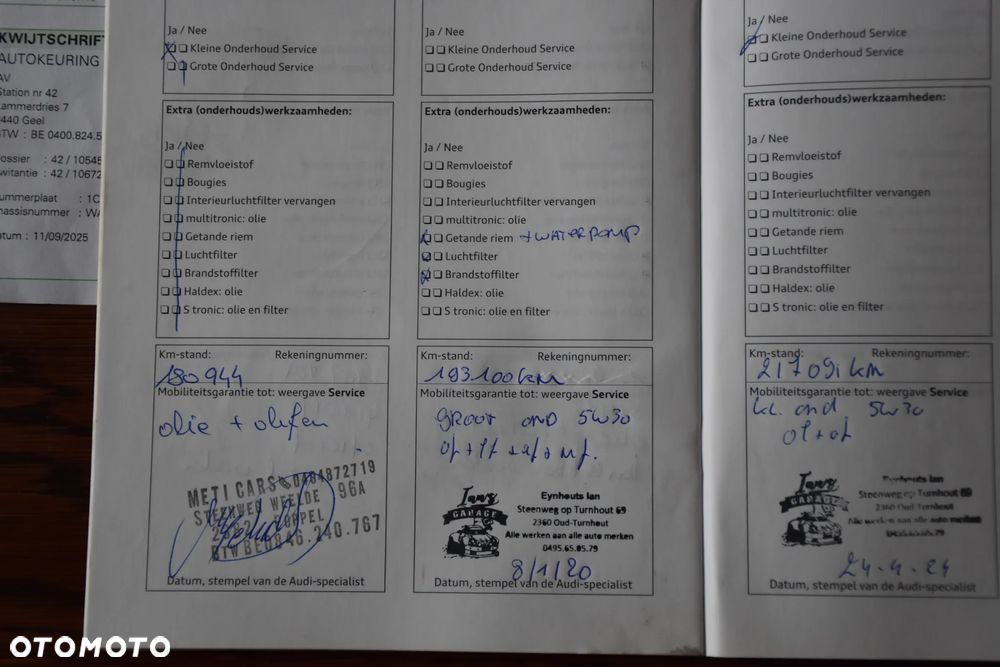 KWIJTSCHRIFT
AUTOKEURING
AV
Station nr 42
Kammerdries 7
2440 Geel
BTW : BE 0400.824.5
Dossier : 42 / 10545
Kwitantie : 42 / 10672
Nummerplaat : 1C
Chassisnummer : WA
Datum : 11/09/2025
Ja / Nee
Kleine Onderhoud Service
Grote Onderhoud Service
Extra (onderhouds)werkzaamheden:
Ja / Nee
Remvloeistof
Bougies
Interieurluchtfilter vervangen
multitronic: olie
Getande riem
Luchtfilter
Brandstoffilter
Haldex: olie
S tronic: olie en filter
Km-stand: Rekeningnummer:
180944
Mobiliteitsgarantie tot: weergave Service
olie +
METI CARS 0484872719
STEENWEG WEELDE 96A
POPPEL
BTW BE0846.240.767
Datum, stempel van de Audi-specialist
Ja / Nee
Kleine Onderhoud Service
Grote Onderhoud Service
Extra (onderhouds)werkzaamheden:
Ja / Nee
Remvloeistof
Bougies
Interieurluchtfilter vervangen
multitronic: olie
Getande riem + WATERPOMP
Luchtfilter
Brandstoffilter
Haldex: olie
S tronic: olie en filter
Km-stand: Rekeningnummer:
193100km
Mobiliteitsgarantie tot: weergave Service
GROOT OND 5W30
Ians
GARAGE
Eynhouts Ian
Steenweg op Turnhout 69
2360 Oud-Turnhout
Alle werken aan alle auto merken
0495.65.05.79
8/1/20
Datum, stempel van de Audi-specialist
Ja / Nee
Kleine Onderhoud Service
Grote Onderhoud Service
Extra (onderhouds)werkzaamheden:
Ja / Nee
Remvloeistof
Bougies
Interieurluchtfilter vervangen
multitronic: olie
Getande riem
Luchtfilter
Brandstoffilter
Haldex: olie
S tronic: olie en filter
Km-stand: Rekeningnummer:
217091km
Mobiliteitsgarantie tot: weergave Service
kl. ond 5W30
Ians
GARAGE
Eynhouts Ian
Steenweg op Turnhout 69
2360 Oud-Turnhout
Alle werken aan alle auto merken
0495.65.05.79
24-4-24
Datum, stempel van de Audi-specialist
OTOMOTO